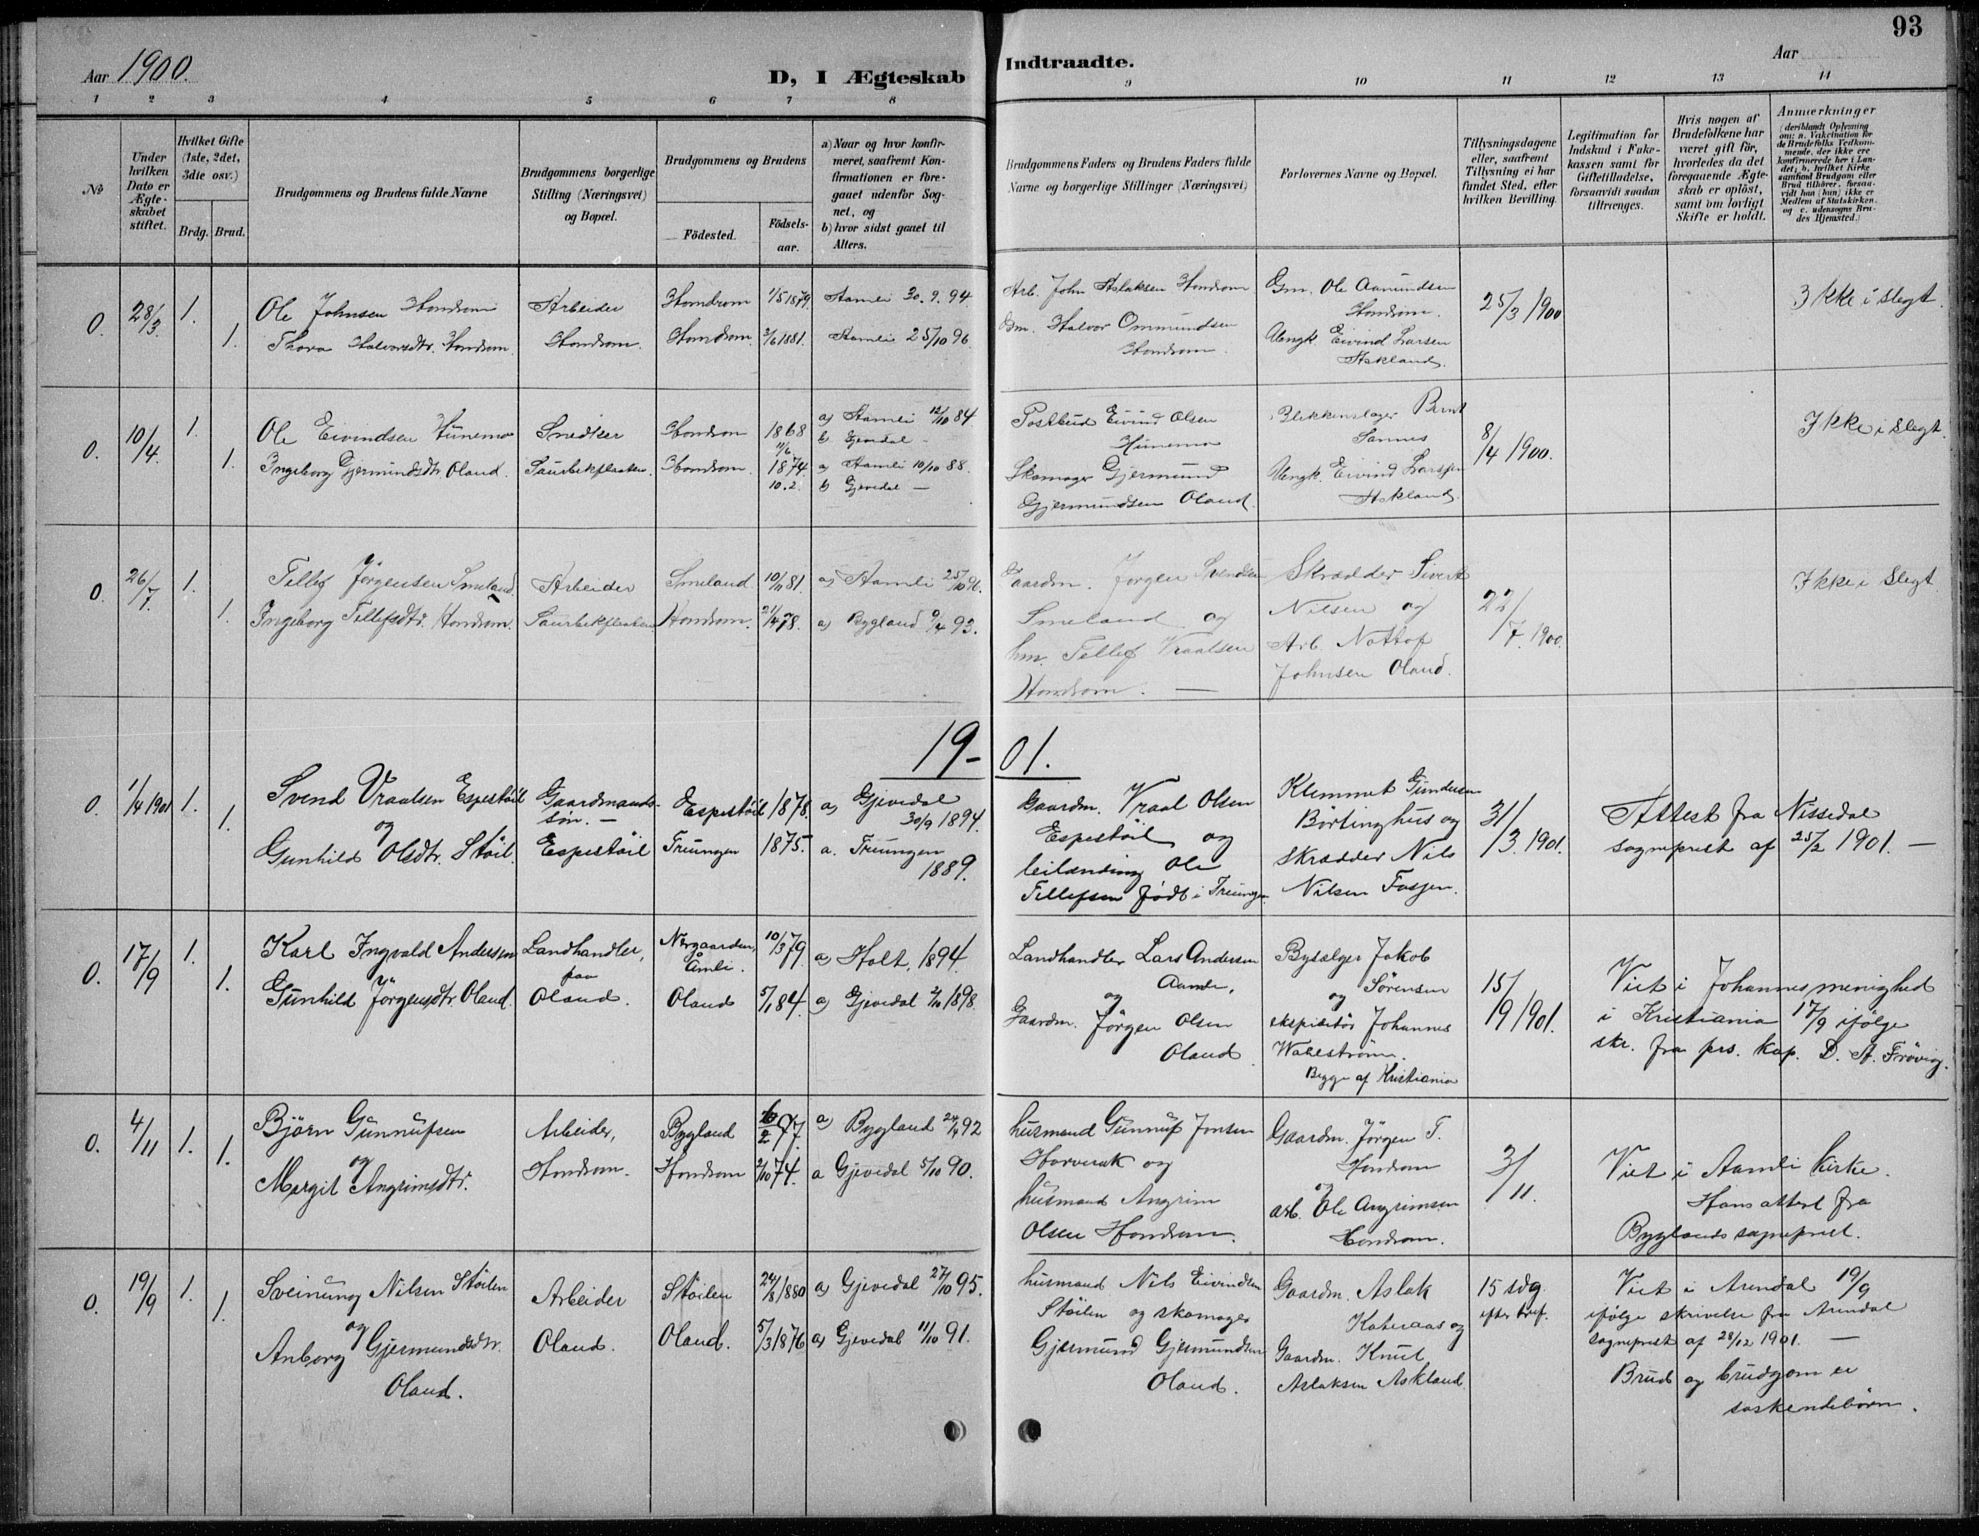 93
Aar 1900.
D, I Ægteskab Indtraadte.
Aar
1 2 3 4 5 6 7 8 9 10 11 12 13 14
No
Under hvilken Dato er Ægteskabet stiftet.
Hvilket Gifte (1ste, 2det, 3die osv.)
Brdg. Brud.
Brudgommens og Brudens fulde Navne
Brudgommens borgerlige Stilling (Næringsvei) og Bopæl.
Brudgommens og Brudens
Födested.
Födselsaar.
a) Naar og hvor konfirmeret, saafremt Konfirmationen er foregaaet udenfor Sognet, og
b) hvor sidst gaaet til Alters.
Brudgommens Faders og Brudens Faders fulde Navne og borgerlige Stillinger (Næringsvei)
Forlovernes Navne og Bopæl.
Tillysningsdagene eller, saafremt Tillysning ei har fundet Sted, efter hvilken Bevilling.
Legitimation for Indskud i Enkekassen samt for Giftetilladelse, forsaavidt saadan tiltrænges.
Hvis nogen af Brudefolkene har været gift för, hvorledes da det foregaaende Ægteskab er oplöst, samt om lovligt Skifte er holdt.
Anmærkninger
(deriblandt Oplysning om: a. Vakcination for de Brudefolks Vedkommende, der ikke ere konfirmerede her i Landet; b. hvilket Kirkesamfund Brudgom eller Brud tilhörer, forsaavidt han (hun) ikke er Medlem af Statskirken, og c. udensogns Brudes Hjemsted.)
0. 28/3 1. 1.
Ole Johnsen Hondrom
Thora Halvorsdtr. Hondrom.
Arbeider
Hondrom.
Hondrom 1/5 1879.
Hondrom 2/6 1881.
Aamli 30.9.94.
Aamli 25/10 96.
Arb. John Aslaksen Hondrom
Gm. Halvor Ommundsen
Hondrom.
Gm. Ole Aamundsen
Hondrom.
Ungk. Eivind Larsen
Askland.
25/3 1900
Ikke i Slegt.
0. 10/4. 1. 1.
Ole Eivindsen Hunemo
Ingeborg Gjermundsdtr. Oland.
Snedker
Saurbekplassen
Hondrom 1868 11/6
Hondrom. 1874 10.2.
a) Aamli 12/10 84
b) Gjevdal -
a) Aamli 10/10 88.
b) Gjevdal —
Postbud Eivind Olsen
Hunemo
Skomager Gjermund
Gjermundsen Oland.
Blikkenslager Bernt
Sannes
Ungk. Eivind Larsen
Askland.
8/4 1900.
Ikke i Slegt.
0. 26/7 1. 1.
Tellef Jørgensen Smeland.
Ingeborg Tellefsdtr. Hondrom.
Arbeider
Saurbekplassen
Smeland 10/11 81.
Hondrom. 21/4 78.
a) Aamli 25/10 96.
a) Bygland 9/4 93.
Gaardm. Jørgen Svendsen
Smeland og
hm. Tellef Vraalsen
Hondrom. —
Skrædder Sivert
Nilsen og
Arb. Nottof
Johnsen Oland.
22/7. 1900.
Ikke i Slegt
19-01.
0. 1/4 1901 1. 1.
Svend Vraalsen Espestöil
og
Gunhild Olsdtr. Stöil.
Gaardmands-
søn. —
Espestöil
Espestöil 1878.
Treungen 1875.
a) Gjevedal
30/9 1894.
a. Treungen
1889.
Gaardm. Vraal Olsen
Espestöil og
leilænding Ole
Tellefsen født i Treungen
Klemmet Gundersen
Börtinghus og
skrædder Nils
Nilsen Fosjen.
31/3. 1901.
Attest fra Nissedal
sogneprest af 25/2 1901. —
0. 17/9 1. 1.
Karl Ingvald Andersen
Gunhild Jörgensdtr Oland.
Landhandler,
paa
Oland.
Nergaarden, Åmli. 10/3 79
Oland 5/1 84.
a) Holt, 1894.
a) Gjevedal 2/10 1898.
Landhandler Lars Andersen
Aamli,
og
Gaardm. Jörgen Olsen
Oland
Bysælger Jakob
Sørensen
og
ekspeditør Johannes
Wahlstrøm.
Begge af Kristiania
15/9 1901.
Viet i Johannesmenighed
i Kristiania 17/9 ifølge
skr. fra prs. kap. D. A. Frövig.
0. 4/11 1. 1.
Björn Gunnufsen
og
Margit Angrimsdtr.
Arbeider,
Hondrom.
Bygland 10/2 77
Hondrom 2/10 74.
a) Bygland 24/4 92
a Gjevedal 5/10 90.
husmand Gunnuf Jonsen
Horverak og
husmand Angrim
Olsen Hondrom.
Gaardm. Jörgen T.
Hondrom
og
arb. Ole Angrimsen
Hondrom.
3/11.
Viet i Aamli kirke.
Hans attest fra
Byglands sogneprest.
0. 19/9 1. 1.
Sveinung Nilsen Stöilen
og
Anborg Gjermundsdtr.
Oland.
Arbeider
Oland.
Stöilen 24/8 1880
Oland. 5/3 1876
a) Gjevedal 27/10 95.
a) Gjevedal 11/10 91.
husmand Nils Eivindsen
Stöilen og skomager
Gjermund Gjermundsen
Oland.
Gaardm. Aslak
Kateraas og
Gaardm. Knut
Aslaksen Askland
15 sdg.
efter tref.
Viet i Arendal 19/9
ifølge skrivelse fra Arendal
sogneprest af 28/12 1901. —
Brud og brudgom er
søskendebörn.